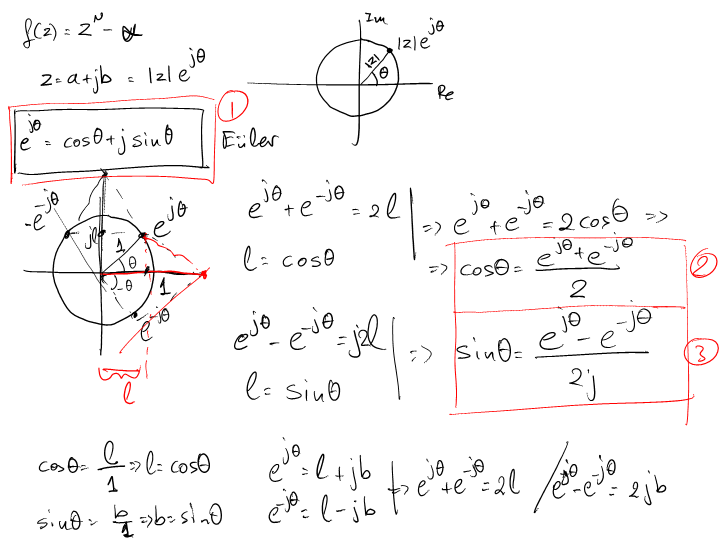 f(z) = z^N - α
Im
|z|e^{jθ}
|z|
θ
Re
z = a + jb = |z| e^{jθ}
①
e^{jθ} = cosθ + j sinθ
Euler
-e^{-jθ}
e^{jθ}
jl
1
θ
-θ
1
e^{-jθ}
l
e^{jθ} + e^{-jθ} = 2l
l = cosθ
=> e^{jθ} + e^{-jθ} = 2 cosθ =>
=> cosθ = (e^{jθ} + e^{-jθ}) / 2
②
e^{jθ} - e^{-jθ} = j2l
l = sinθ
=> sinθ = (e^{jθ} - e^{-jθ}) / 2j
③
cosθ = l/1 => l = cosθ
sinθ = b/1 => b = sinθ
e^{jθ} = l + jb
e^{-jθ} = l - jb
=> e^{jθ} + e^{-jθ} = 2l / e^{jθ} - e^{-jθ} = 2jb